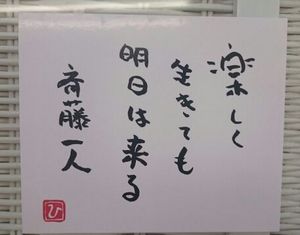 楽しく
生きても
明日は来る
斉藤一人
ひ